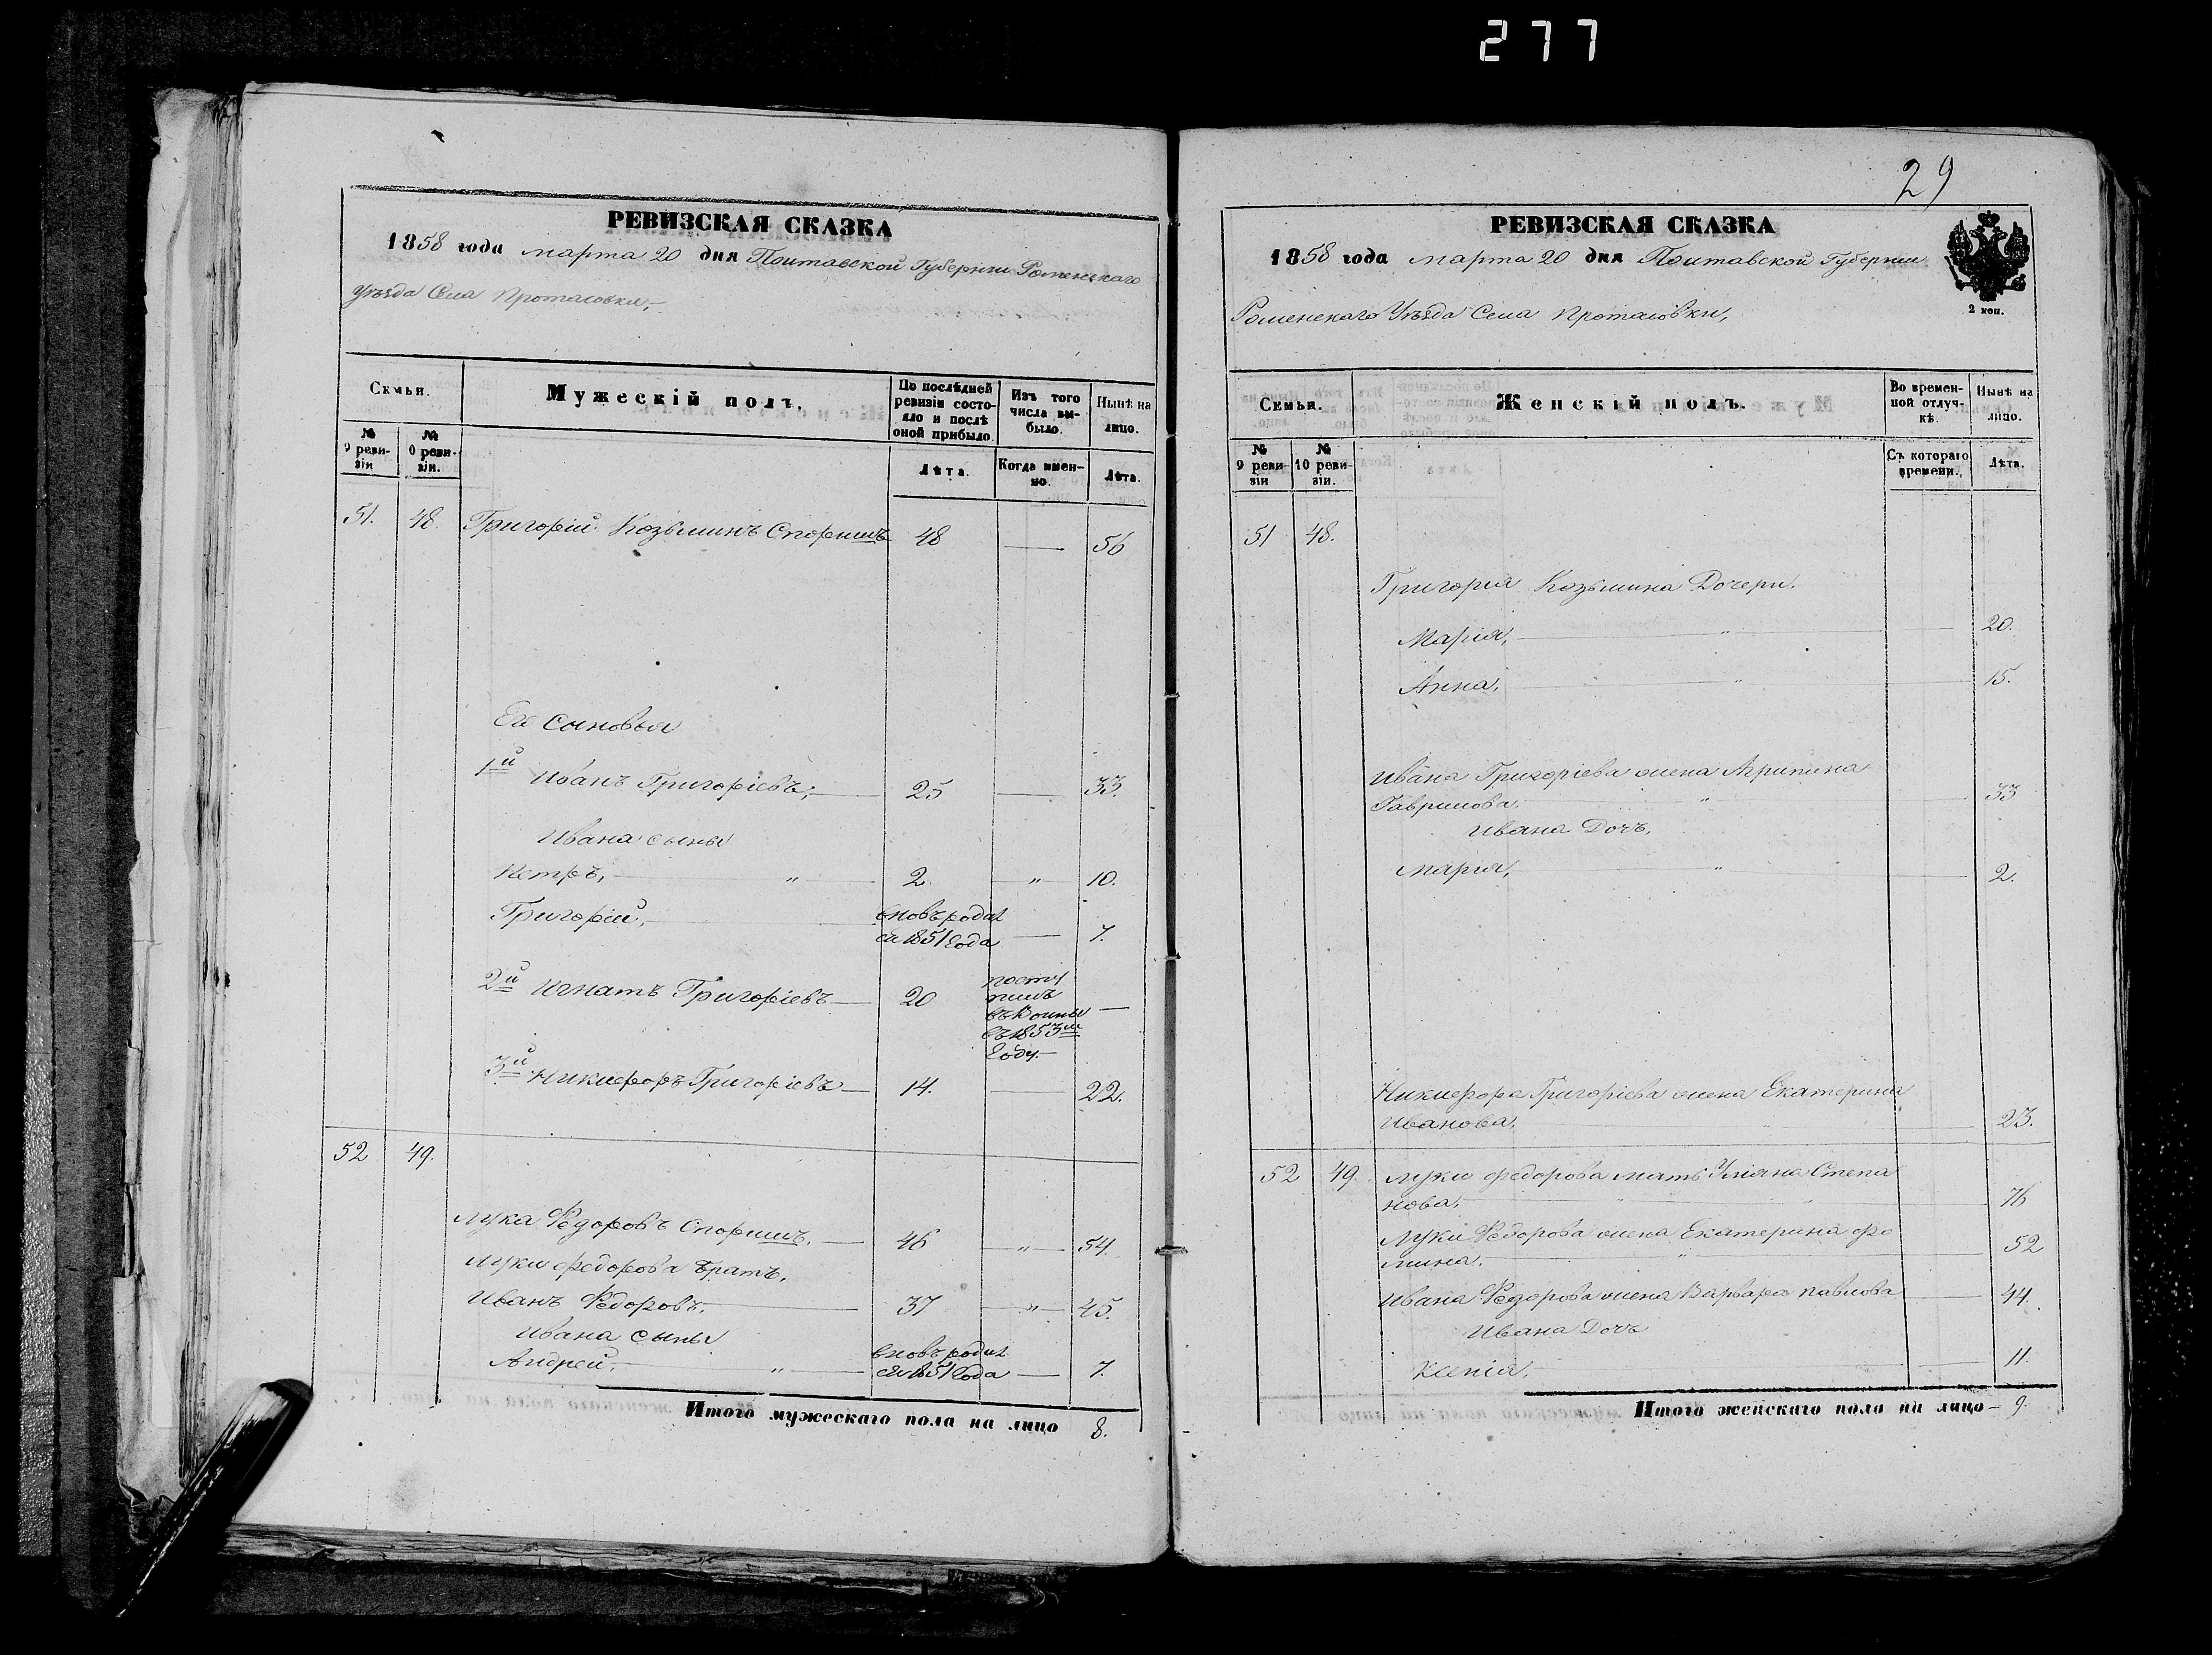 277
РЕВИЗСКАЯ СКАЗКА
1858 года марта 20 дня Полтавской Губернии Роменскаго
Уѣзда Села Протасовки,
Семьи.
Мужескій полъ.
По послѣдней ревизіи состояло и послѣ оной прибыло.
Изъ того числа выбыло.
Нынѣ на лицо.
№ 9 ревизіи
№ 0 ревизіи.
Лѣта.
Когда именно.
Лѣта.
51. 48. Григорій Козьминъ Споришъ 48 — 56
Ег сыновья
1й Иванъ Григоріевъ; 25 — 33.
Ивана сыны
Петръ, " 2 " 10.
Григорій, вновь родил
ся 1851 Года — 7.
2й Игнатъ Григоріевъ — 20 посту
пилъ
въ 1853м
Году. —
3й Никифоръ Григоріевъ — 14. — 22.
52 49.
Лука Федоровъ Споришъ. — 46 " 54.
Луки Федорова братъ,
Иванъ Федоровъ. 37 " 45.
Ивана сыны
Андрей, " вновь родил
ся 1851 Года — 7.
Итого мужескаго пола на лицо 8.
29
РЕВИЗСКАЯ СКАЗКА
1858 года марта 20 дня Полтавской Губернии
Роменскаго Уѣзда Села Протасовки,
2 коп.
Семьи.
Женскій полъ.
Во временной отлучкѣ.
Нынѣ на лицо.
№ 9 ревизіи
№ 10 ревизіи.
Съ котораго времени.
Лѣта.
51 48.
Григорія Козьмина Дочери.
Марія, " 20.
Анна, " 15.
Ивана Григоріева жена Агрипина
Гаврилова. " 33
Ивана Дочь,
Марія, " 2.
Никифора Григоріева жена Екатерина
Иванова. 23.
52 49. Луки Федорова мать Уліяна Степа
нова, " " 76
Луки Федорова жена Екатерина Фо
мина. " 52
Ивана Федорова жена Варвара Павлова 44.
Ивана Дочь
Ксенія, 11.
Итого женскаго пола на лицо — 9.